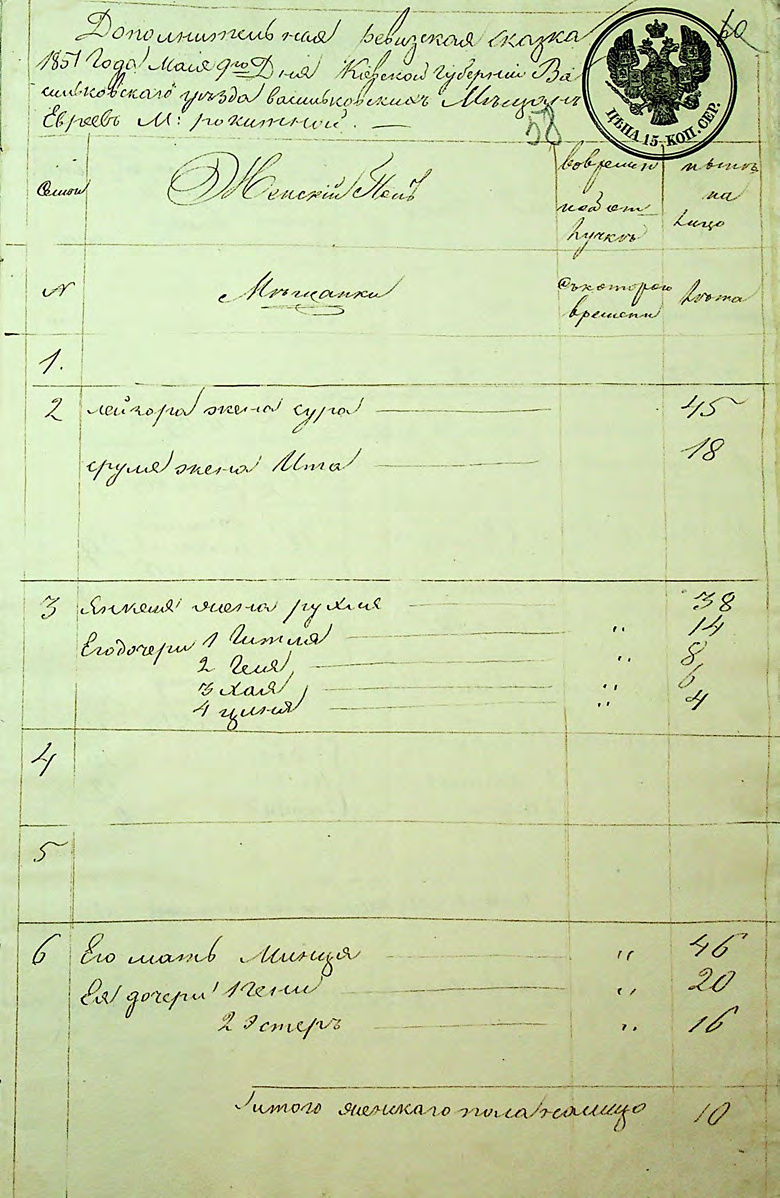 Дополнительная ревизская сказка
1851 Года Маія 9го Дня Кіевской Губерніи Ва
сильковскаго уезда васильковскихъ Мѣщанъ
Евреевъ М: рокитной. —
60
58
ЦѢНА 15. КОП. СЕР.
Семьи Женскій Полъ вовременн нынѣ
на
отлучкѣ лицо
№ Мѣщанки Съкотораго Лѣта
времени
1.
2 лейзора жена сура 45
сруля жена Ита 18
3 Янкеля жена рухля 38
Егодочери 1 Гитля " 14
2 Геня " 8
3 хая " 6
4 циня " 4
4
5
6 Его мать Минця " 46
Ея дочери 1 Гени " 20
2 Эстеръ " 16
Итого женскаго пола налицо 10